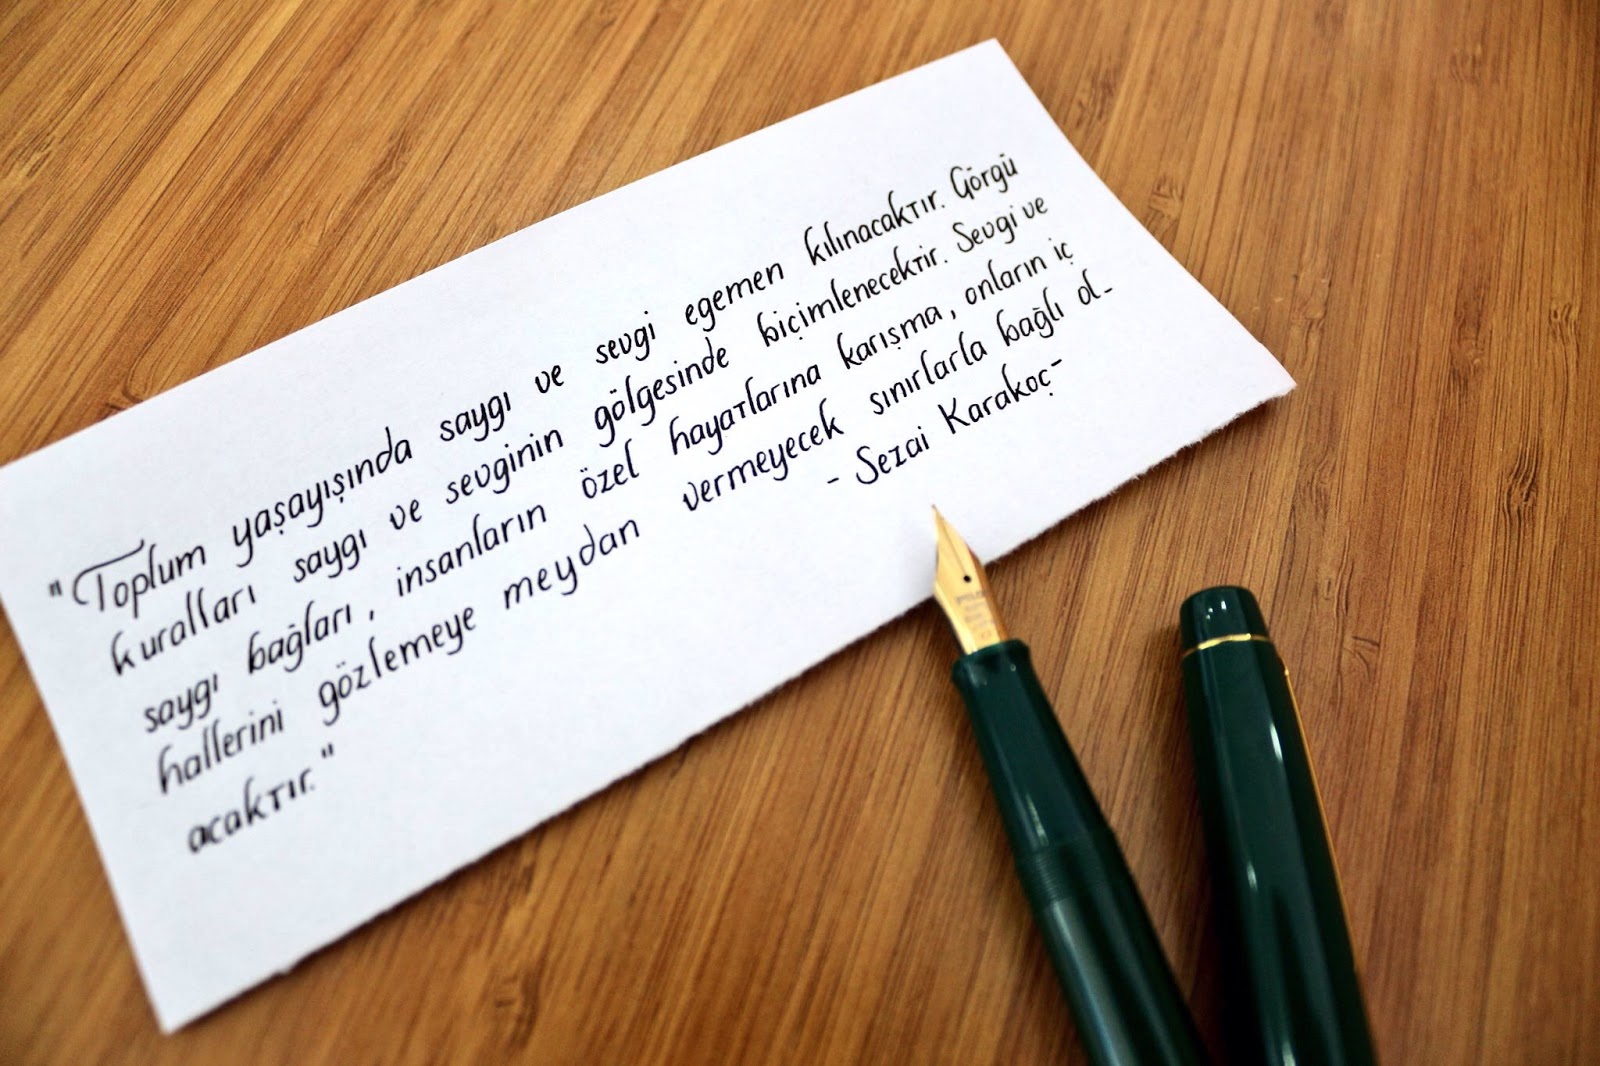 "Toplum yaşayışında saygı ve sevgi egemen kılınacaktır. Görgü
kuralları saygı ve sevginin gölgesinde biçimlenecektir. Sevgi ve
saygı bağları, insanların özel hayatlarına karışma, onların iç
hallerini gözlemeye meydan vermeyecek sınırlarla bağlı ol-
acaktır."
- Sezai Karakoç-